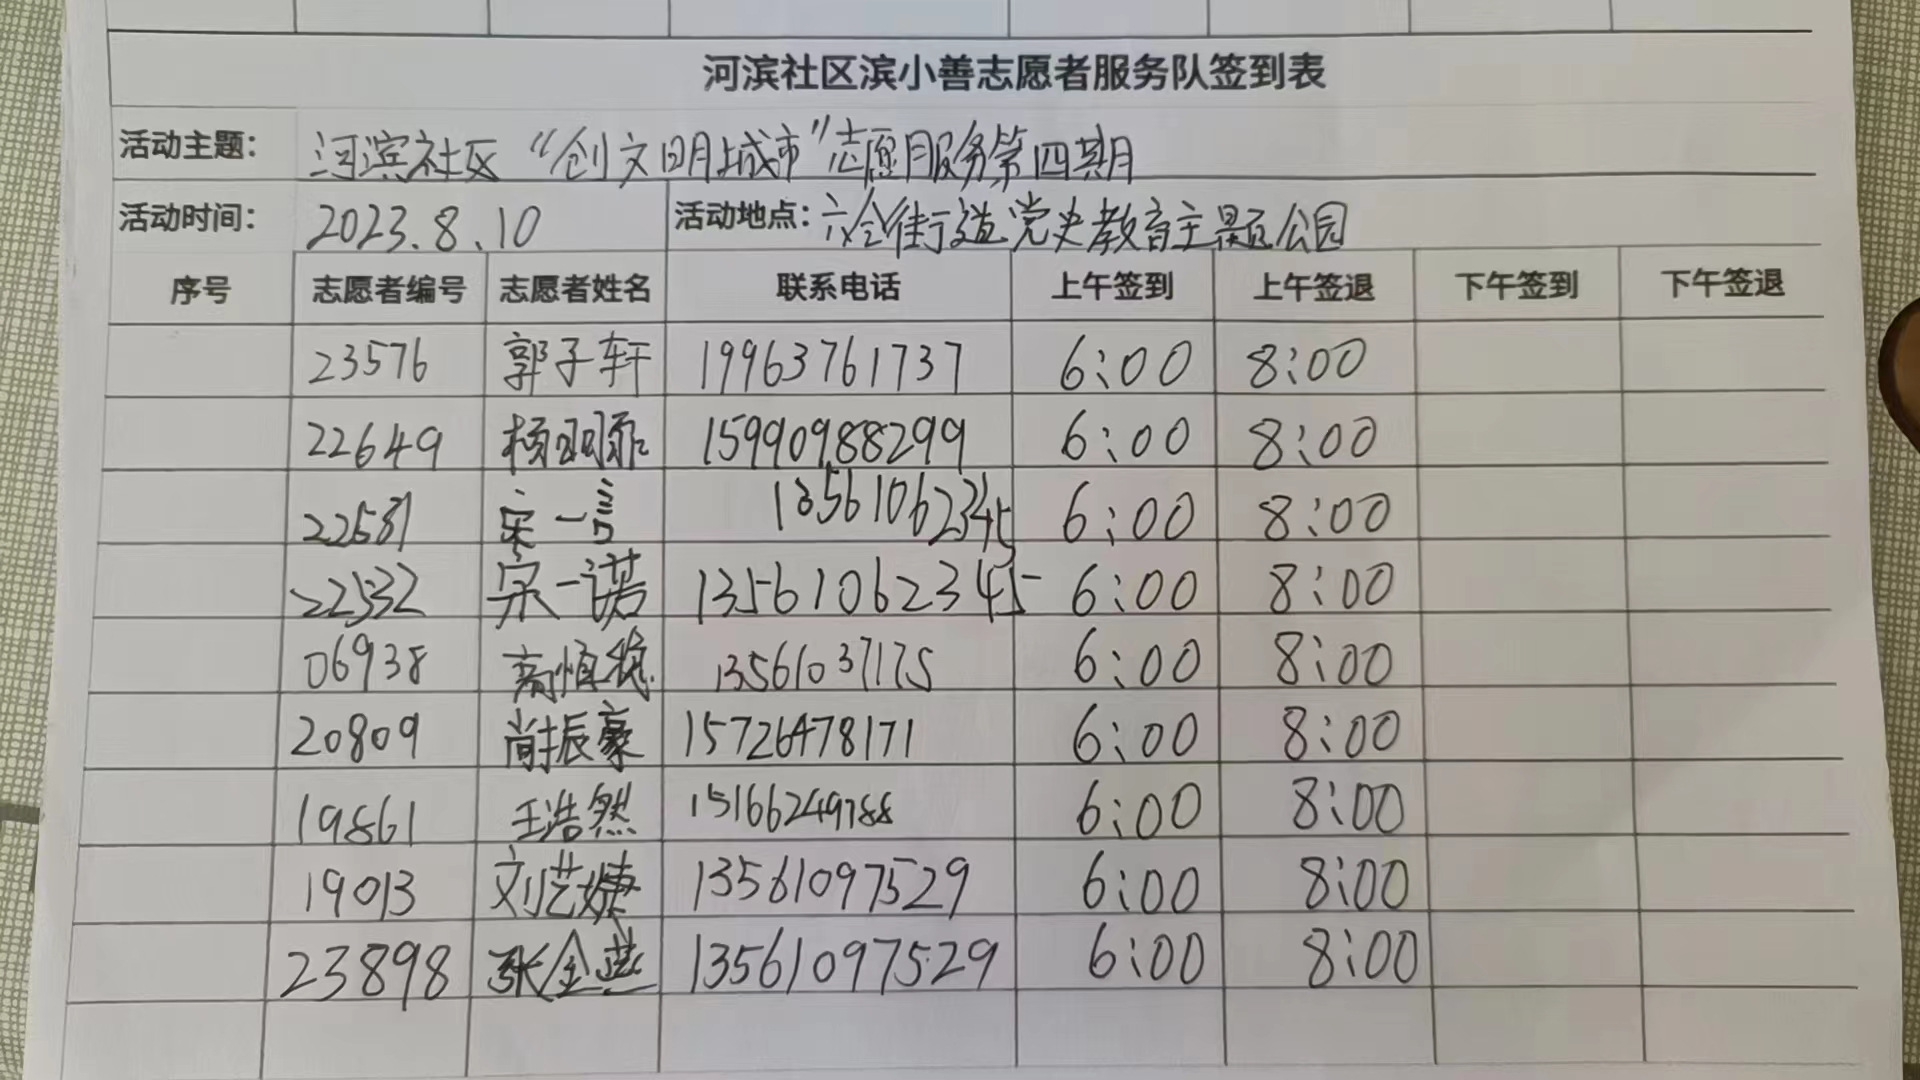 河滨社区滨小善志愿者服务队签到表
活动主题： 河滨社区“创文明城市”志愿服务第四期
活动时间： 2023.8.10 活动地点：六合街道党史教育主题公园
序号 志愿者编号 志愿者姓名 联系电话 上午签到 上午签退 下午签到 下午签退
23576 郭子轩 19963761737 6:00 8:00
22649 杨 15990988299 6:00 8:00
22531 宋一言 13561062345 6:00 8:00
22532 宋一诺 13561062345 6:00 8:00
06938 高恒 13561037175 6:00 8:00
20809 尚振豪 15726478171 6:00 8:00
19861 王浩然 15166249788 6:00 8:00
19013 刘艺婕 13561097529 6:00 8:00
23898 张金燕 13561097529 6:00 8:00